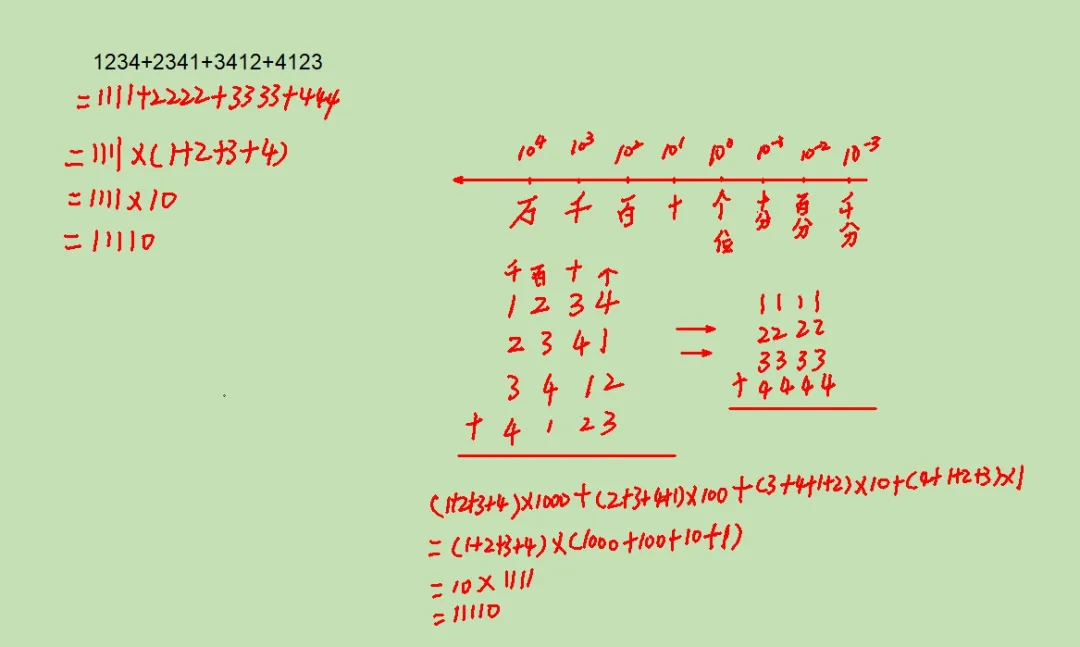 1234+2341+3412+4123
=1111+2222+3333+444
=1111×(1+2+3+4)
=1111×10
=11110
10⁴ 10³ 10² 10¹ 10⁰ 10⁻¹ 10⁻² 10⁻³
万 千 百 十 个位 十分 百分 千分
千 百 十 个
1 2 3 4
2 3 4 1
3 4 1 2
+ 4 1 2 3
1 1 1 1
2 2 2 2
3 3 3 3
+ 4 4 4 4
(1+2+3+4)×1000+(2+3+4+1)×100+(3+4+1+2)×10+(4+1+2+3)×1
=(1+2+3+4)×(1000+100+10+1)
=10×1111
=11110